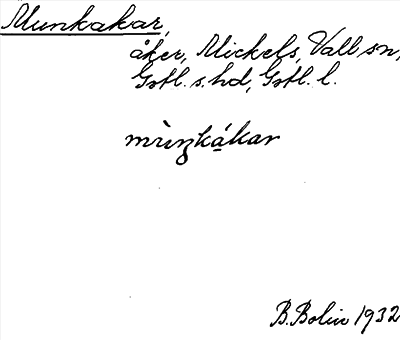 Munkakar,
åker, Mickels, Vall sn,
Gotl. s. hd, Gotl. l.
mùŋkákar
B. Bolin 1932